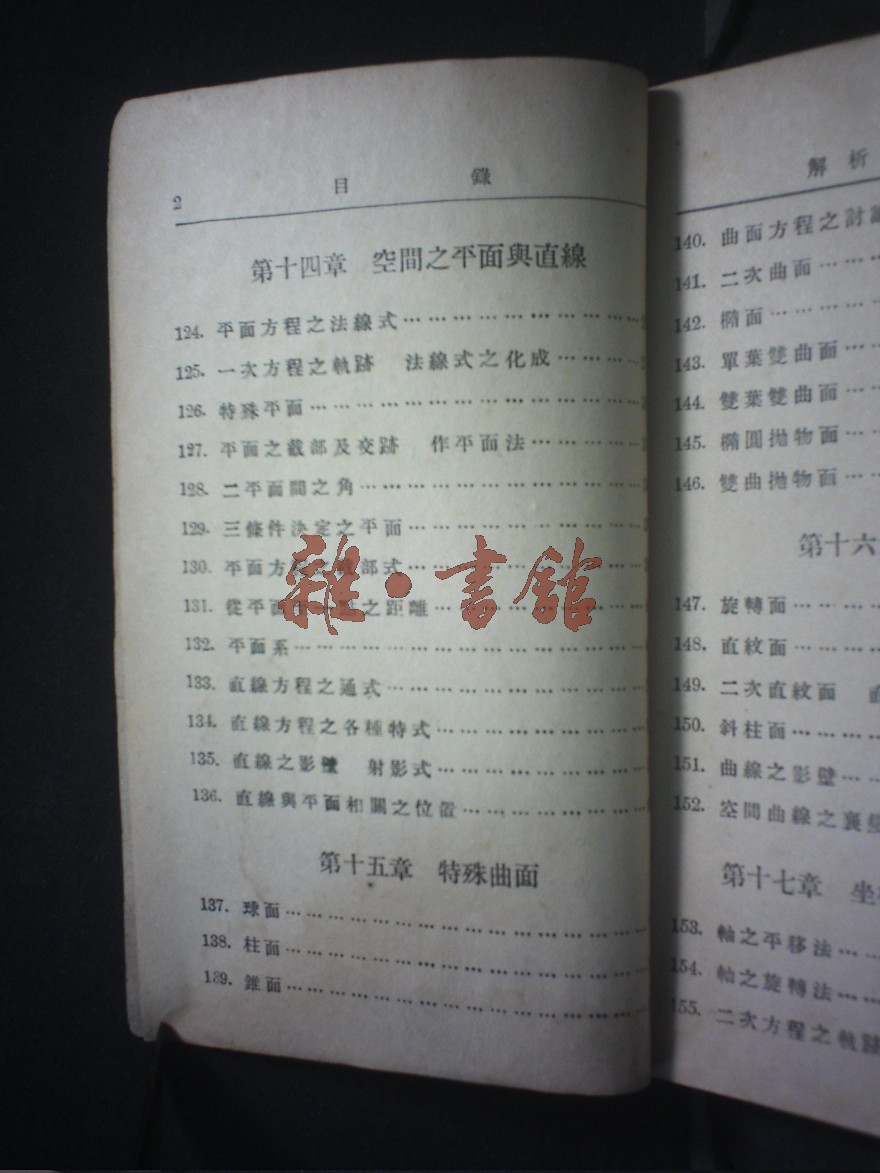 2 目 錄
第十四章 空間之平面與直線
124. 平面方程之法線式………………………
125. 一次方程之軌跡 法線式之化成…………
126. 特殊平面………………………………
127. 平面之截部及交跡 作平面法……………
128. 二平面間之角…………………………
129. 三條件決定之平面………………………
130. 平面方 部式………………………
131. 從平面 之距離……………………
132. 平面系…………………………………
133. 直線方程之通式………………………
134. 直線方程之各種特式……………………
135. 直線之影壁 射影式……………………
136. 直線與平面相關之位置…………………
第十五章 特殊曲面
137. 球面……………………………………
138. 柱面……………………………………
139. 錐面……………………………………
雜·書館
解 析
140. 曲面方程之討
141. 二次曲面………
142. 橢面…………
143. 單葉雙曲面……
144. 雙葉雙曲面……
145. 橢圓拋物面……
146. 雙曲拋物面……
第十六
147. 旋轉面…………
148. 直紋面…………
149. 二次直紋面
150. 斜柱面…………
151. 曲線之影壁……
152. 空間曲線之
第十七章 坐
153. 軸之平移法……
154. 軸之旋轉法……
155. 二次方程之軌跡